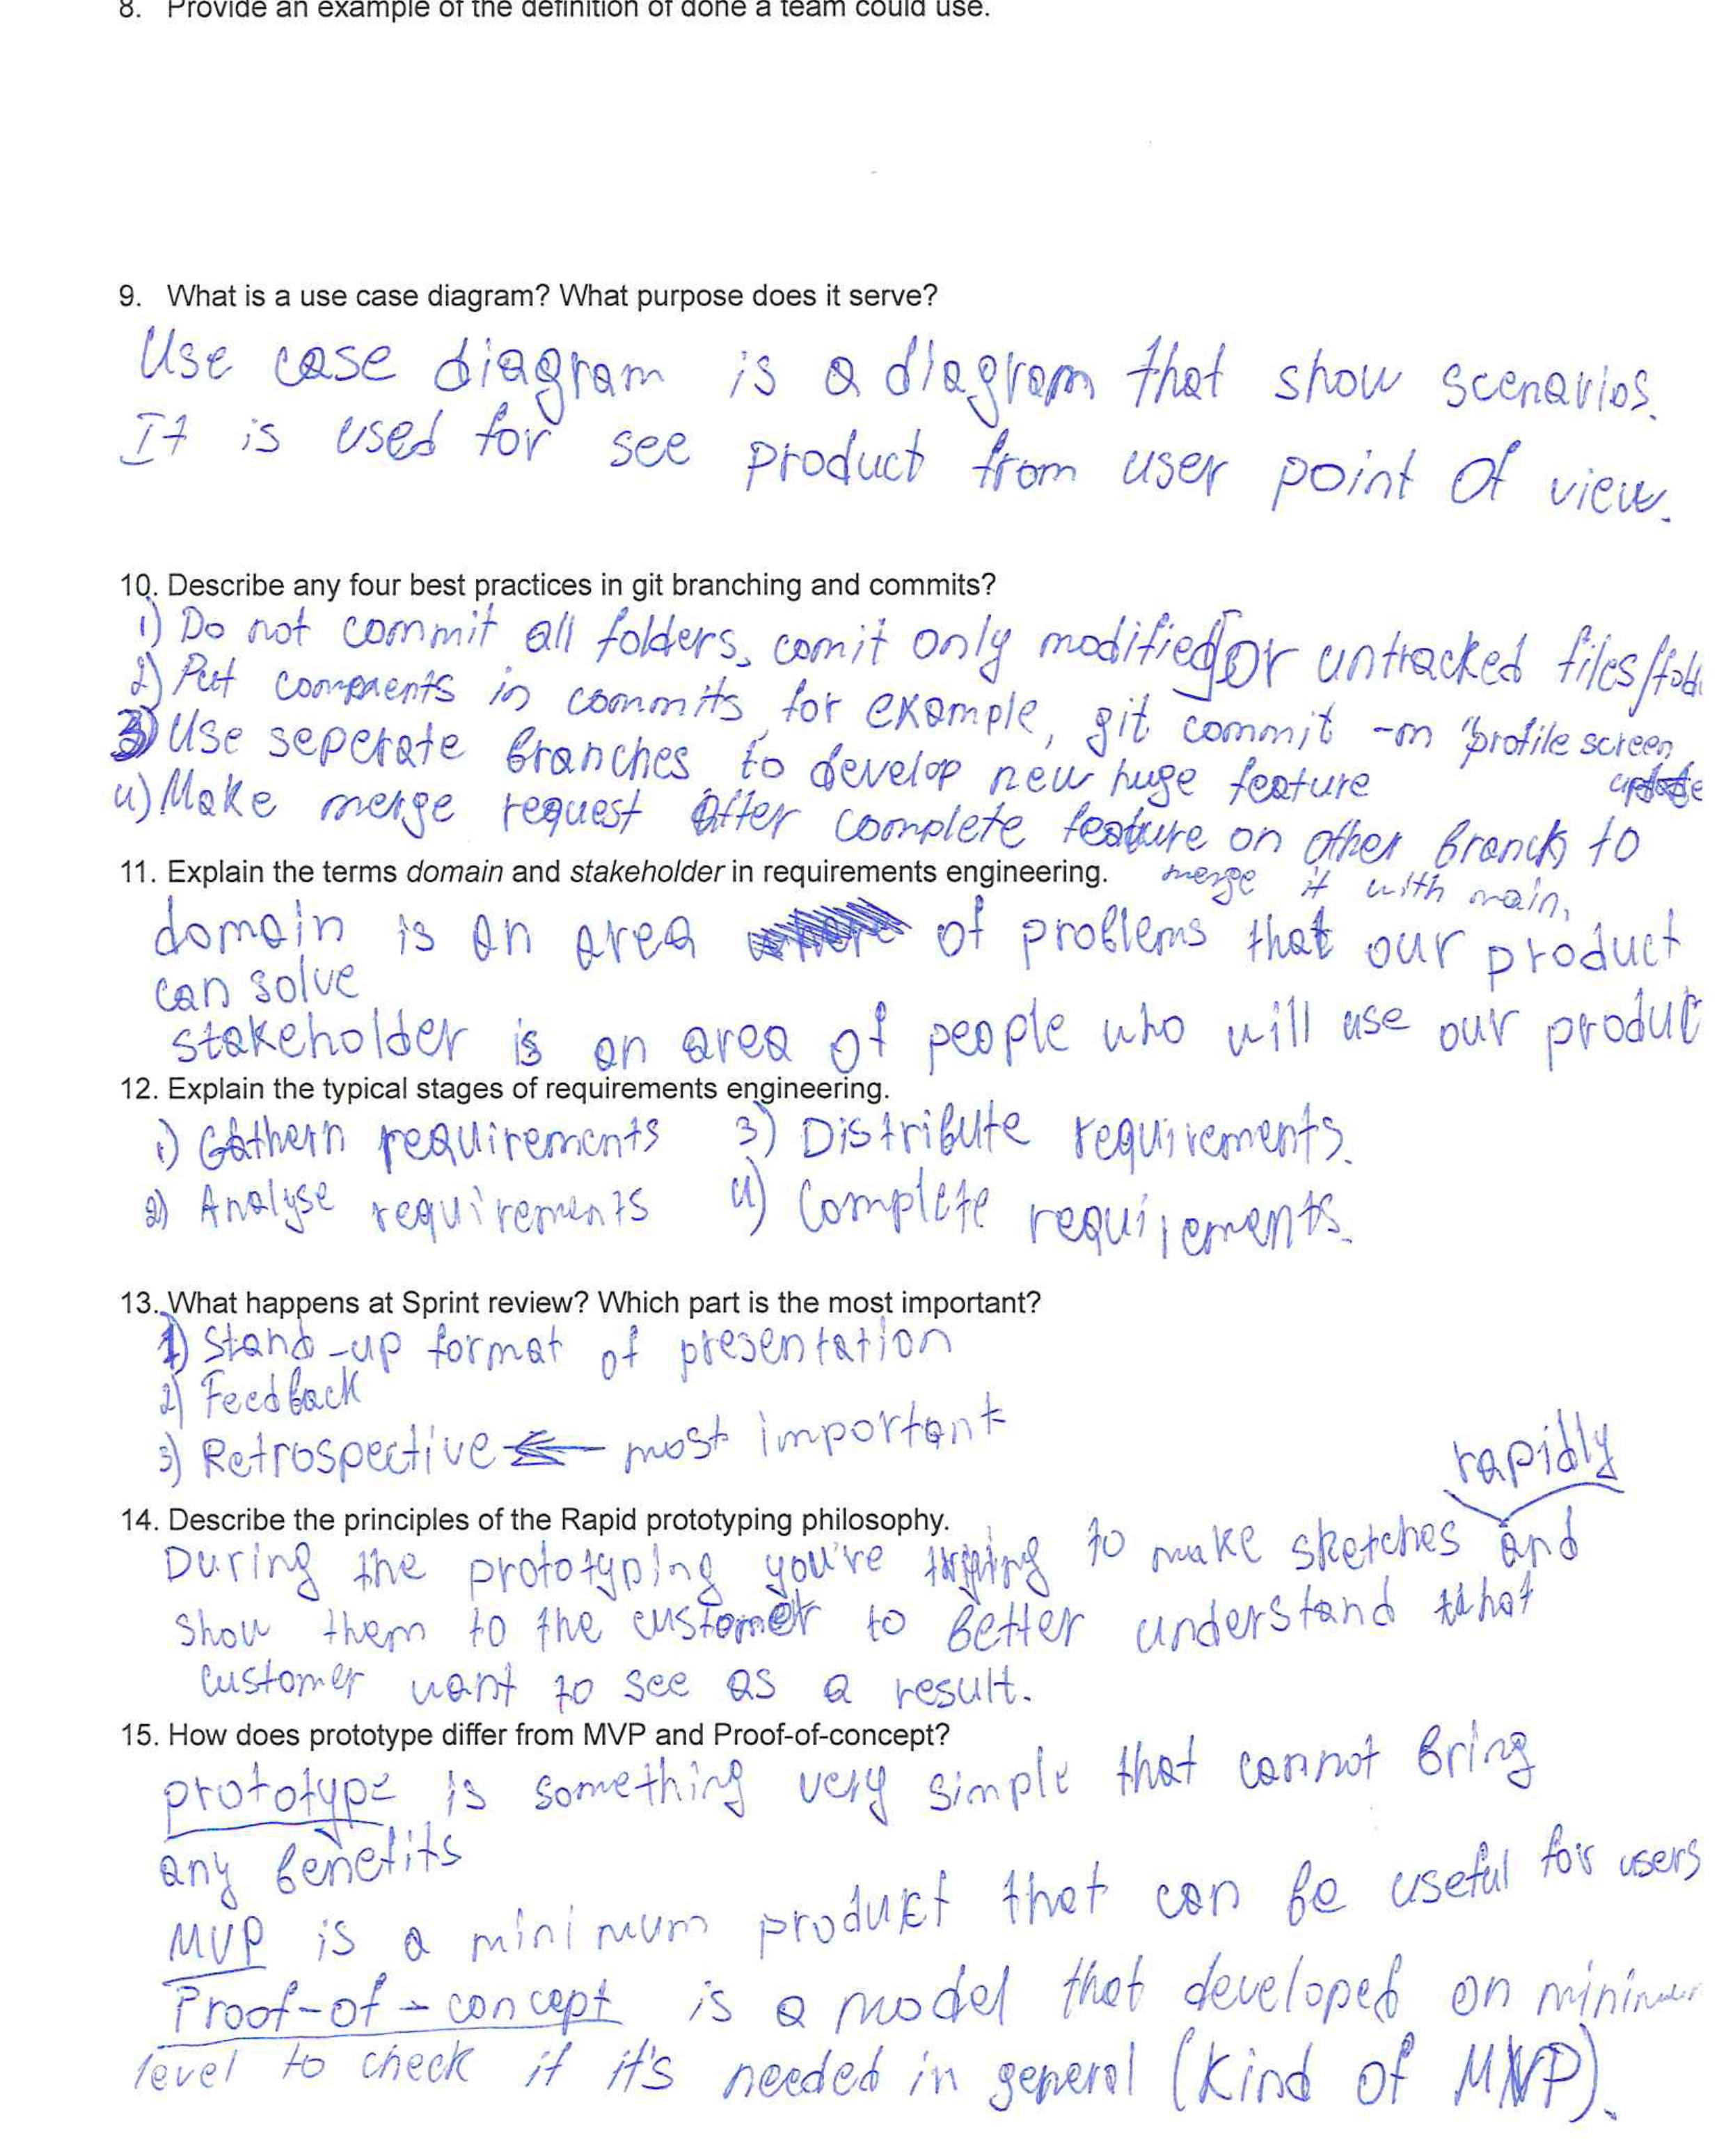 8. Provide an example of the definition of done a team could use.
9. What is a use case diagram? What purpose does it serve?
Use case diagram is a diagram that show scenarios.
It is used for see product from user point of view.
10. Describe any four best practices in git branching and commits?
1) Do not commit all folders, comit only modified or untracked files/fold
2) Put comments in commits, for example, git commit -m "profile screen
update
3) Use seperate branches to develop new huge feature
4) Make merge request after complete feature on other branch to
merge it with main.
11. Explain the terms domain and stakeholder in requirements engineering.
domain is an area of problems that our product
can solve
stakeholder is an area of people who will use our product
12. Explain the typical stages of requirements engineering.
1) Gathern requirements 3) Distribute requirements.
2) Analyse requirements 4) Complete requirements.
13. What happens at Sprint review? Which part is the most important?
1) Stand-up format of presentation
2) Feedback
3) Retrospective ← most important
14. Describe the principles of the Rapid prototyping philosophy.
rapidly
During the prototyping you're trying to make sketches and
show them to the customer to better understand what
customer want to see as a result.
15. How does prototype differ from MVP and Proof-of-concept?
prototype is something very simple that cannot bring
any benefits
MVP is a minimum produkt that can be useful for users
Proof-of-concept is a model that developed on
level to check if it's needed in general (kind of MVP).